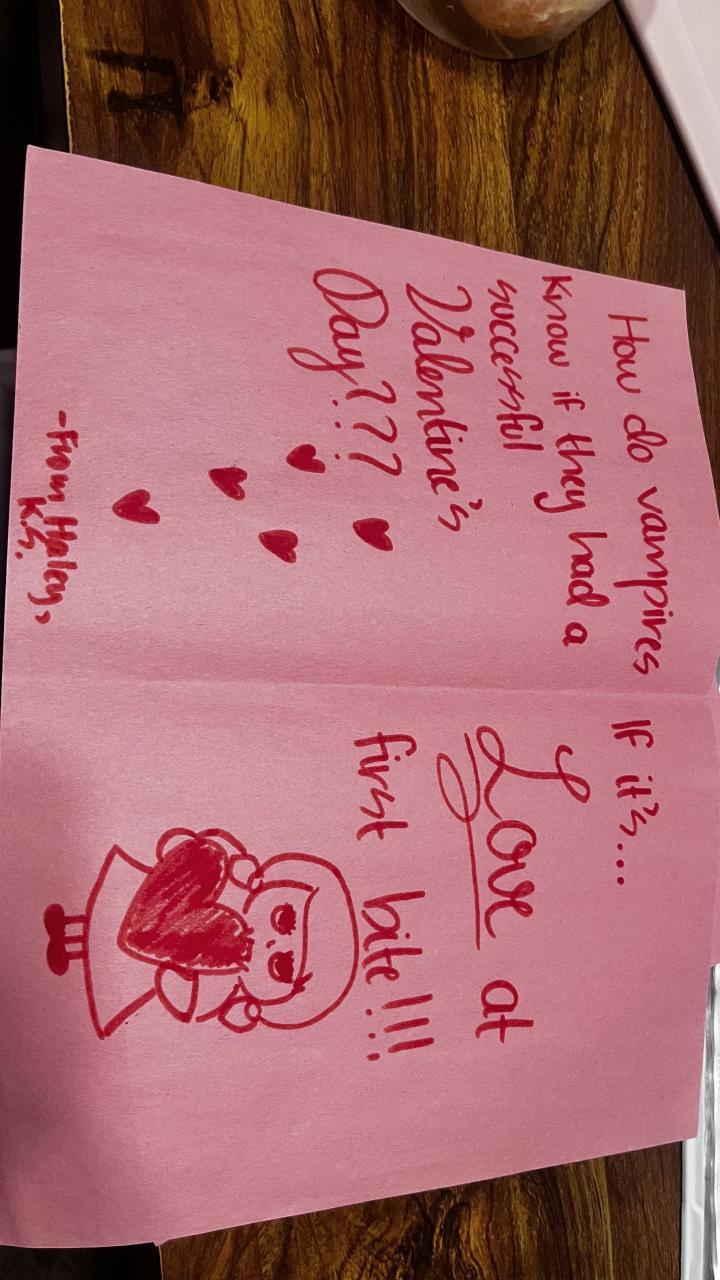 How do vampires
know if they had a
successful
Valentine's
Day???
-From Haley,
K.S.
IF it's...
Love at
first bite!!!